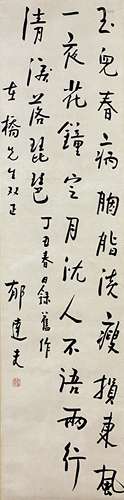 玉兒春病胭脂淡瘦損東風
一夜花鐘定月沈人不語兩行
清淚落琵琶 丁丑春日錄舊作
橋先生双正 郁達夫